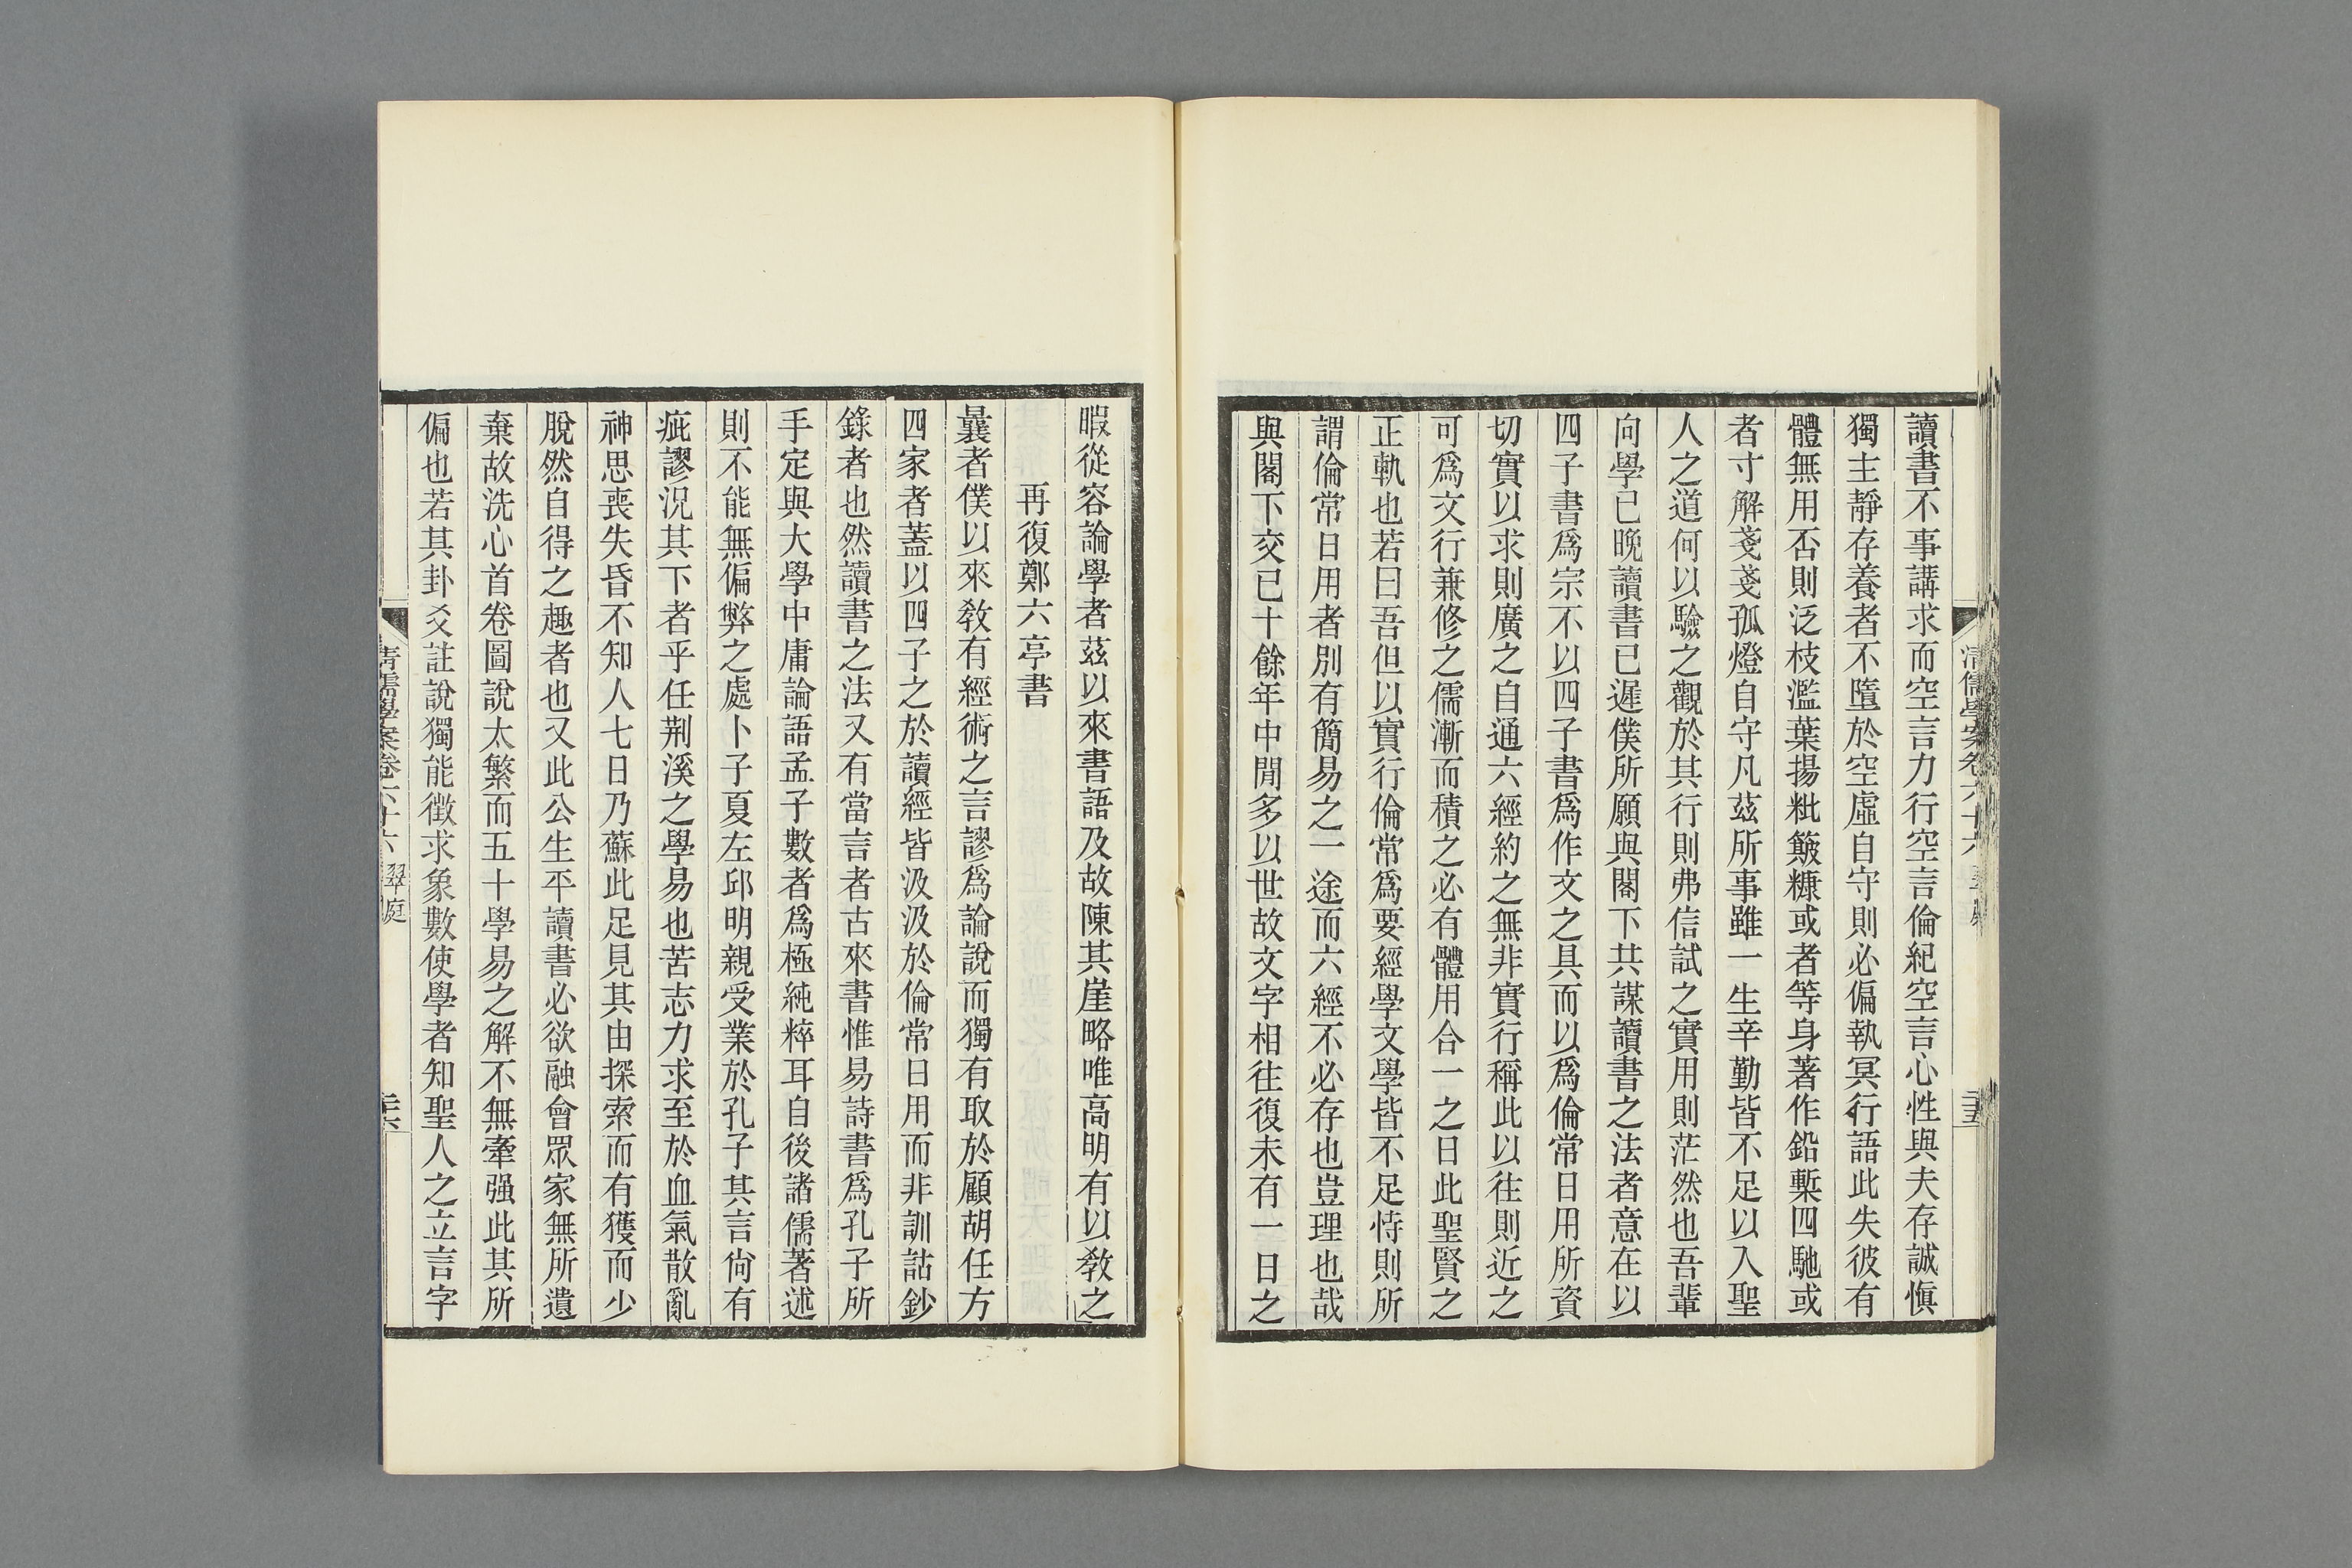 讀書不事講求而空言力行空言倫紀空言心性與夫存誠愼
獨主靜存養者不墮於空虛自守則必偏執冥行語此失彼有
體無用否則泛枝濫葉揚粃簸糠或者等身著作鉛槧四馳或
者寸解戔戔孤燈自守凡茲所事雖一生辛勤皆不足以入聖
人之道何以驗之觀於其行則弗信試之實用則茫然也吾輩
向學已晚讀書已遲僕所願與閣下共謀讀書之法者意在以
四子書爲宗不以四子書爲作文之具而以爲倫常日用所資
切實以求則廣之自通六經約之無非實行稱此以往則近之
可爲文行兼修之儒漸而積之必有體用合一之日此聖賢之
正軌也若曰吾但以實行倫常爲要經學文學皆不足恃則所
謂倫常日用者別有簡易之一途而六經不必存也豈理也哉
與閣下交已十餘年中閒多以世故文字相往復未有一日之
暇從容論學者茲以來書語及故陳其崖略唯高明有以敎之
再復鄭六亭書
曩者僕以來敎有經術之言謬爲論說而獨有取於顧胡任方
四家者蓋以四子之於讀經皆汲汲於倫常日用而非訓詁鈔
錄者也然讀書之法又有當言者古來書惟易詩書爲孔子所
手定與大學中庸論語孟子數者爲極純粹耳自後諸儒著述
則不能無偏弊之處卜子夏左邱明親受業於孔子其言尙有
疵謬況其下者乎任荆溪之學易也苦志力求至於血氣散亂
神思喪失昏不知人七日乃蘇此足見其由探索而有獲而少
脫然自得之趣者也又此公生平讀書必欲融會眾家無所遺
棄故洗心首卷圖說太繁而五十學易之解不無牽强此其所
偏也若其卦爻註說獨能徵求象數使學者知聖人之立言字
清儒學案卷六十六 翠庭